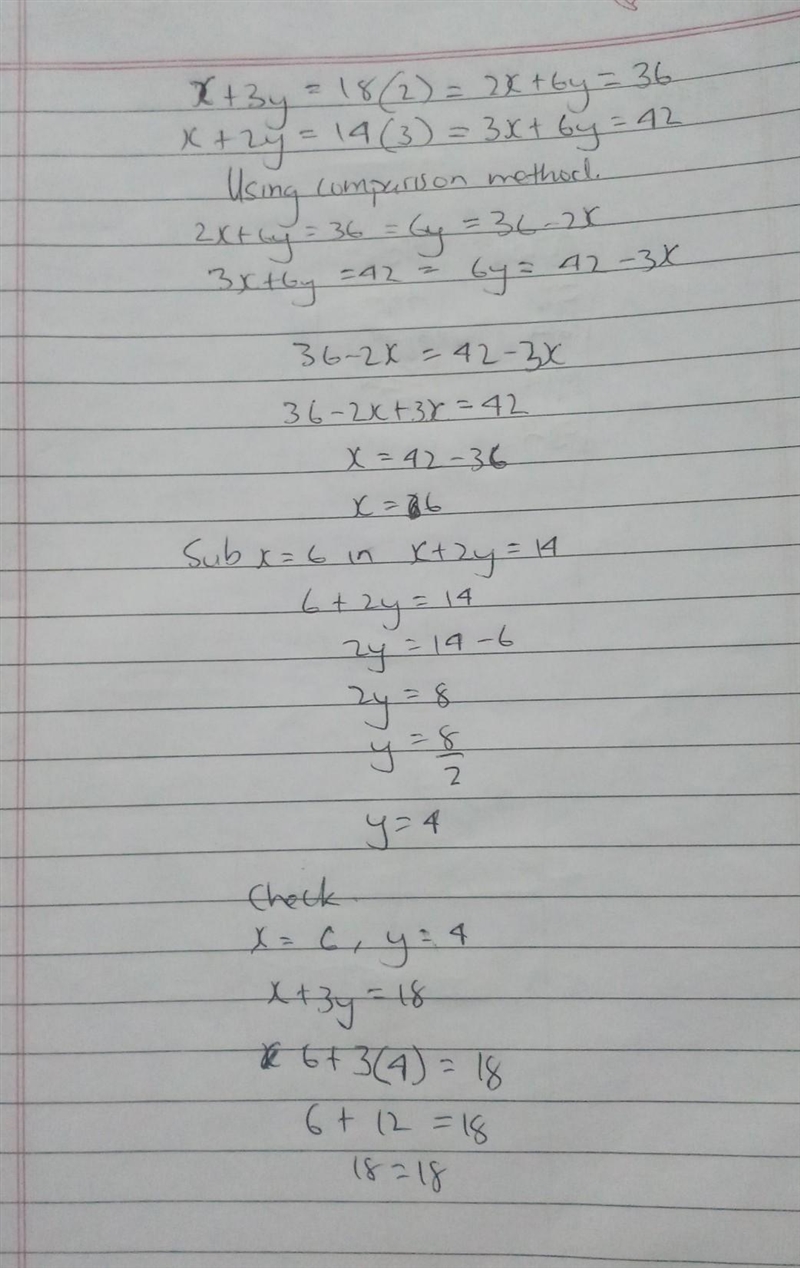 x+3y = 18(2) = 2x+6y = 36
x + 2y = 14(3) = 3x + 6y = 42
Using comparison method.
2x+6y = 36 = 6y = 36-2x
3x+6y = 42 = 6y = 42 - 3x
36-2x = 42-3x
36-2x+3x = 42
x = 42-36
x = 6
Sub x = 6 in x+2y = 14
6 + 2y = 14
2y = 14 - 6
2y = 8
y = 8/2
y = 4
Check
x = 6, y = 4
x+3y = 18
6+3(4) = 18
6 + 12 = 18
18 = 18